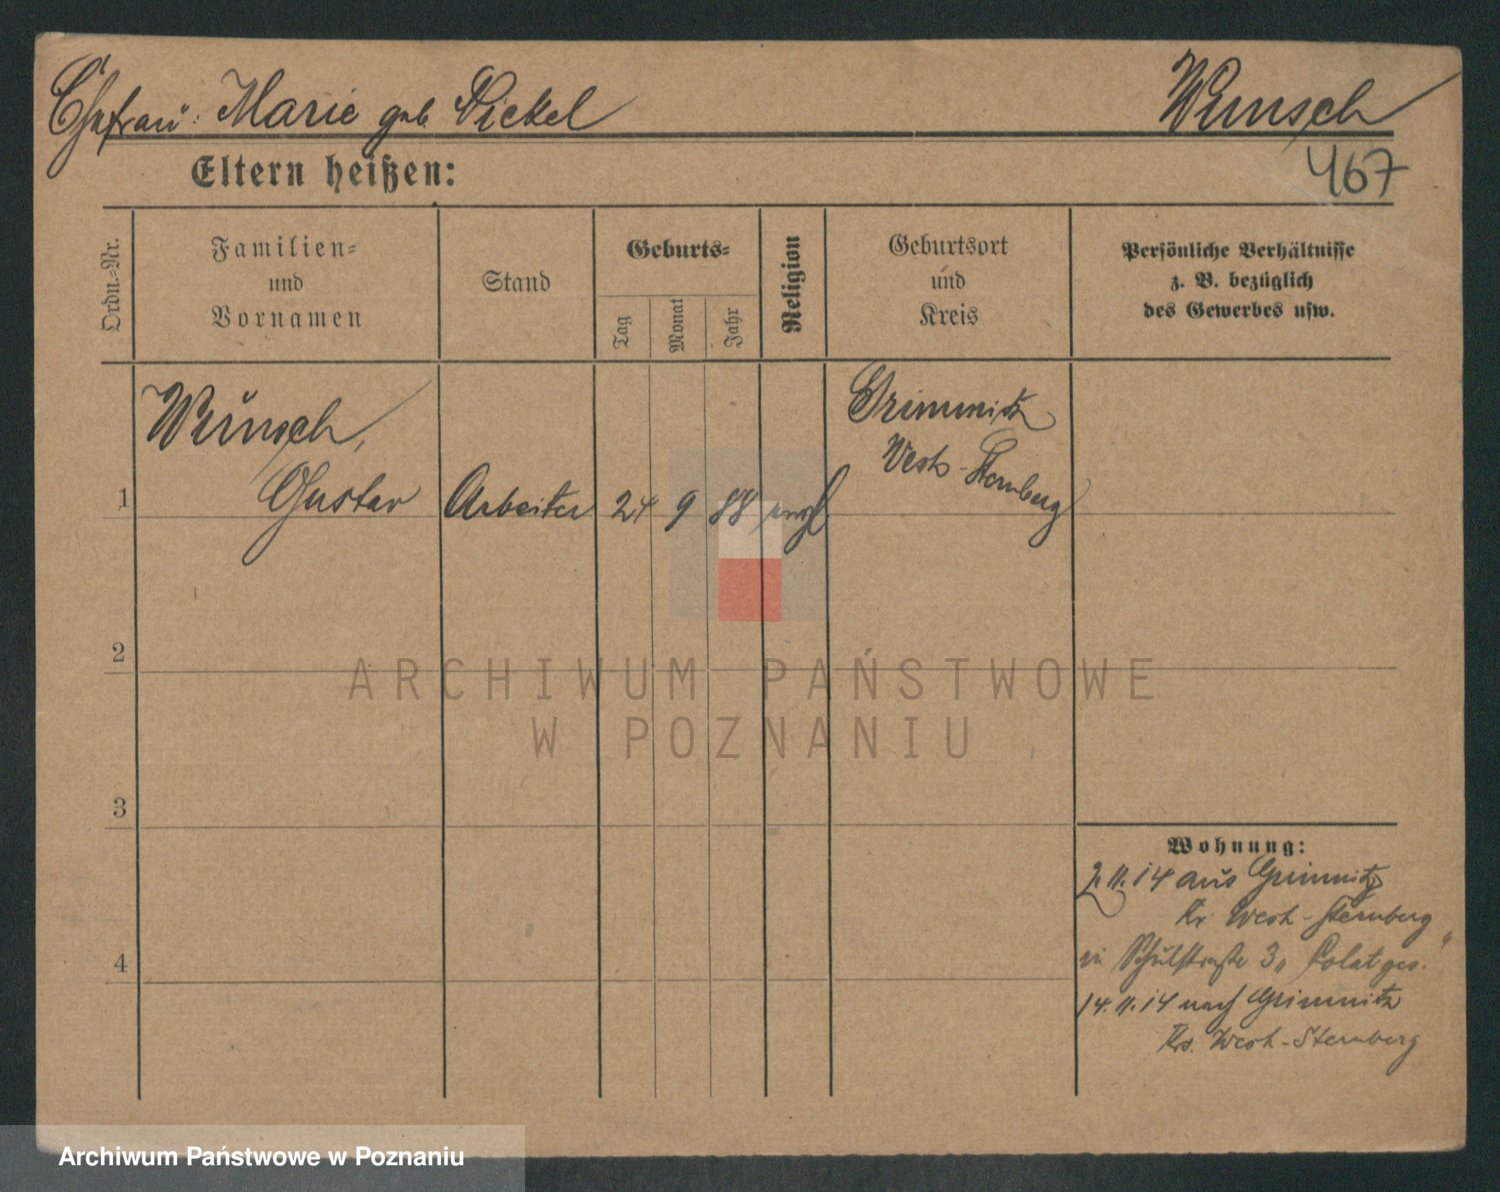 Ehefrau: Marie geb Pickel
Wunsch
Eltern heißen:
467
Ordn.-Nr.
Familien-
und
Vornamen
Stand
Geburts-
Tag
Monat
Jahr
Religion
Geburtsort
und
Kreis
Persönliche Verhältnisse
z. B. bezüglich
des Gewerbes usw.
1
Wunsch,
Gustav
Arbeiter
24
9
88
evgl
Grimnitz
West-Sternberg
2
3
4
Wohnung:
2.11.14 aus Grimnitz
Kr West-Sternberg
in Schulstraße 3
14.11.14 nach Grimnitz
Krs. West-Sternberg
ARCHIWUM PAŃSTWOWE
W POZNANIU
Archiwum Państwowe w Poznaniu